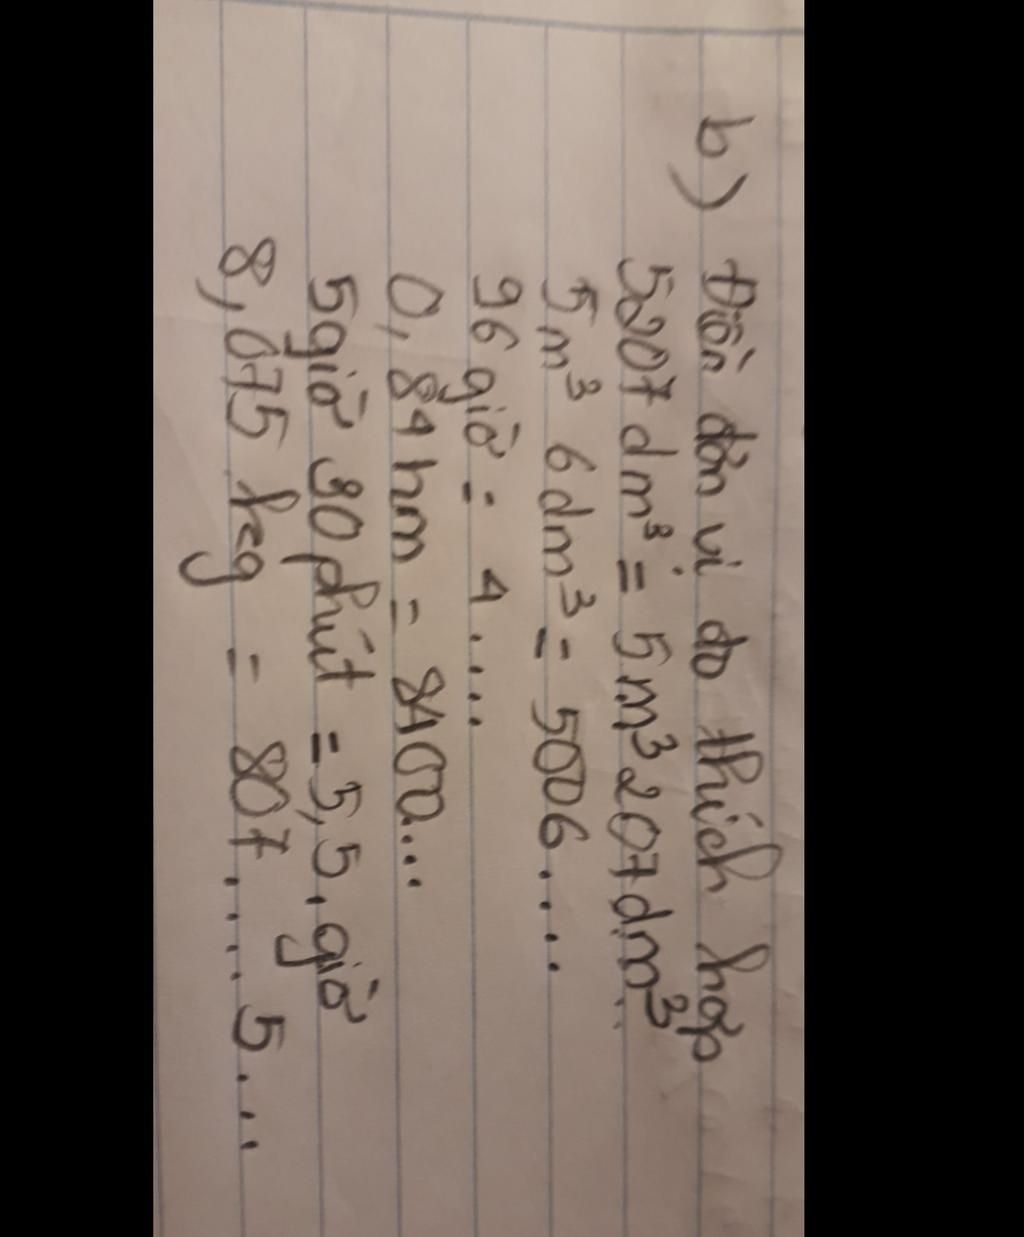 b) Điền đơn vị đo thích hợp
5207 dm³ = 5 m³ 207 dm³..
5 m³ 6 dm³ = 5006.....
96 giờ = 4....
0,84 hm = 8400...
5 giờ 30 phút = 5,5. giờ
8,075 kg = 807..... 5....